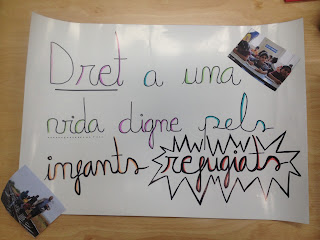 Dret a una
vida digne pels
infants refugiats